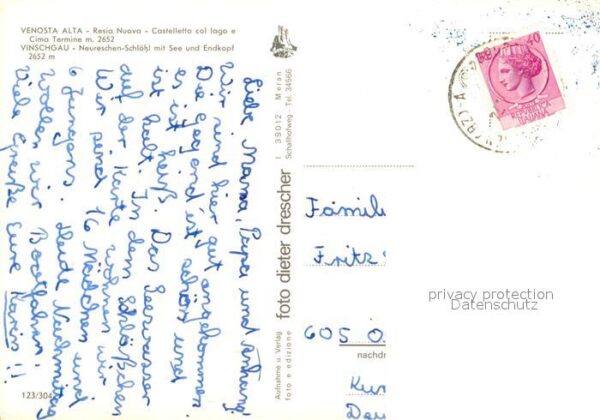 VENOSTA ALTA - Resia Nuova - Castelletto col lago e
Cima Termine m. 2652
VINSCHGAU - Neureschen-Schlößl mit See und Endkopf
2652 m
Liebe Mama, Papa und Anhang!
Wir sind hier gut angekommen.
Die Gegend ist schön und
es ist heiß. Das Seewasser
ist kalt. In dem Schlößchen
auf der Karte wohnen wir.
Wir sind 16 Mädchen und
6 Jungens. Heute Nachmittag
wollen wir Bootfahren.
Viele Grüße Eure Karin!!
123/304
Aufnahme u. Verlag
foto e edizione
foto dieter drescher
I 39012 Meran
Schafhofweg - Tel. 34566
70
Famil
Fritz
605 O
nachdr
privacy protection
Datenschutz